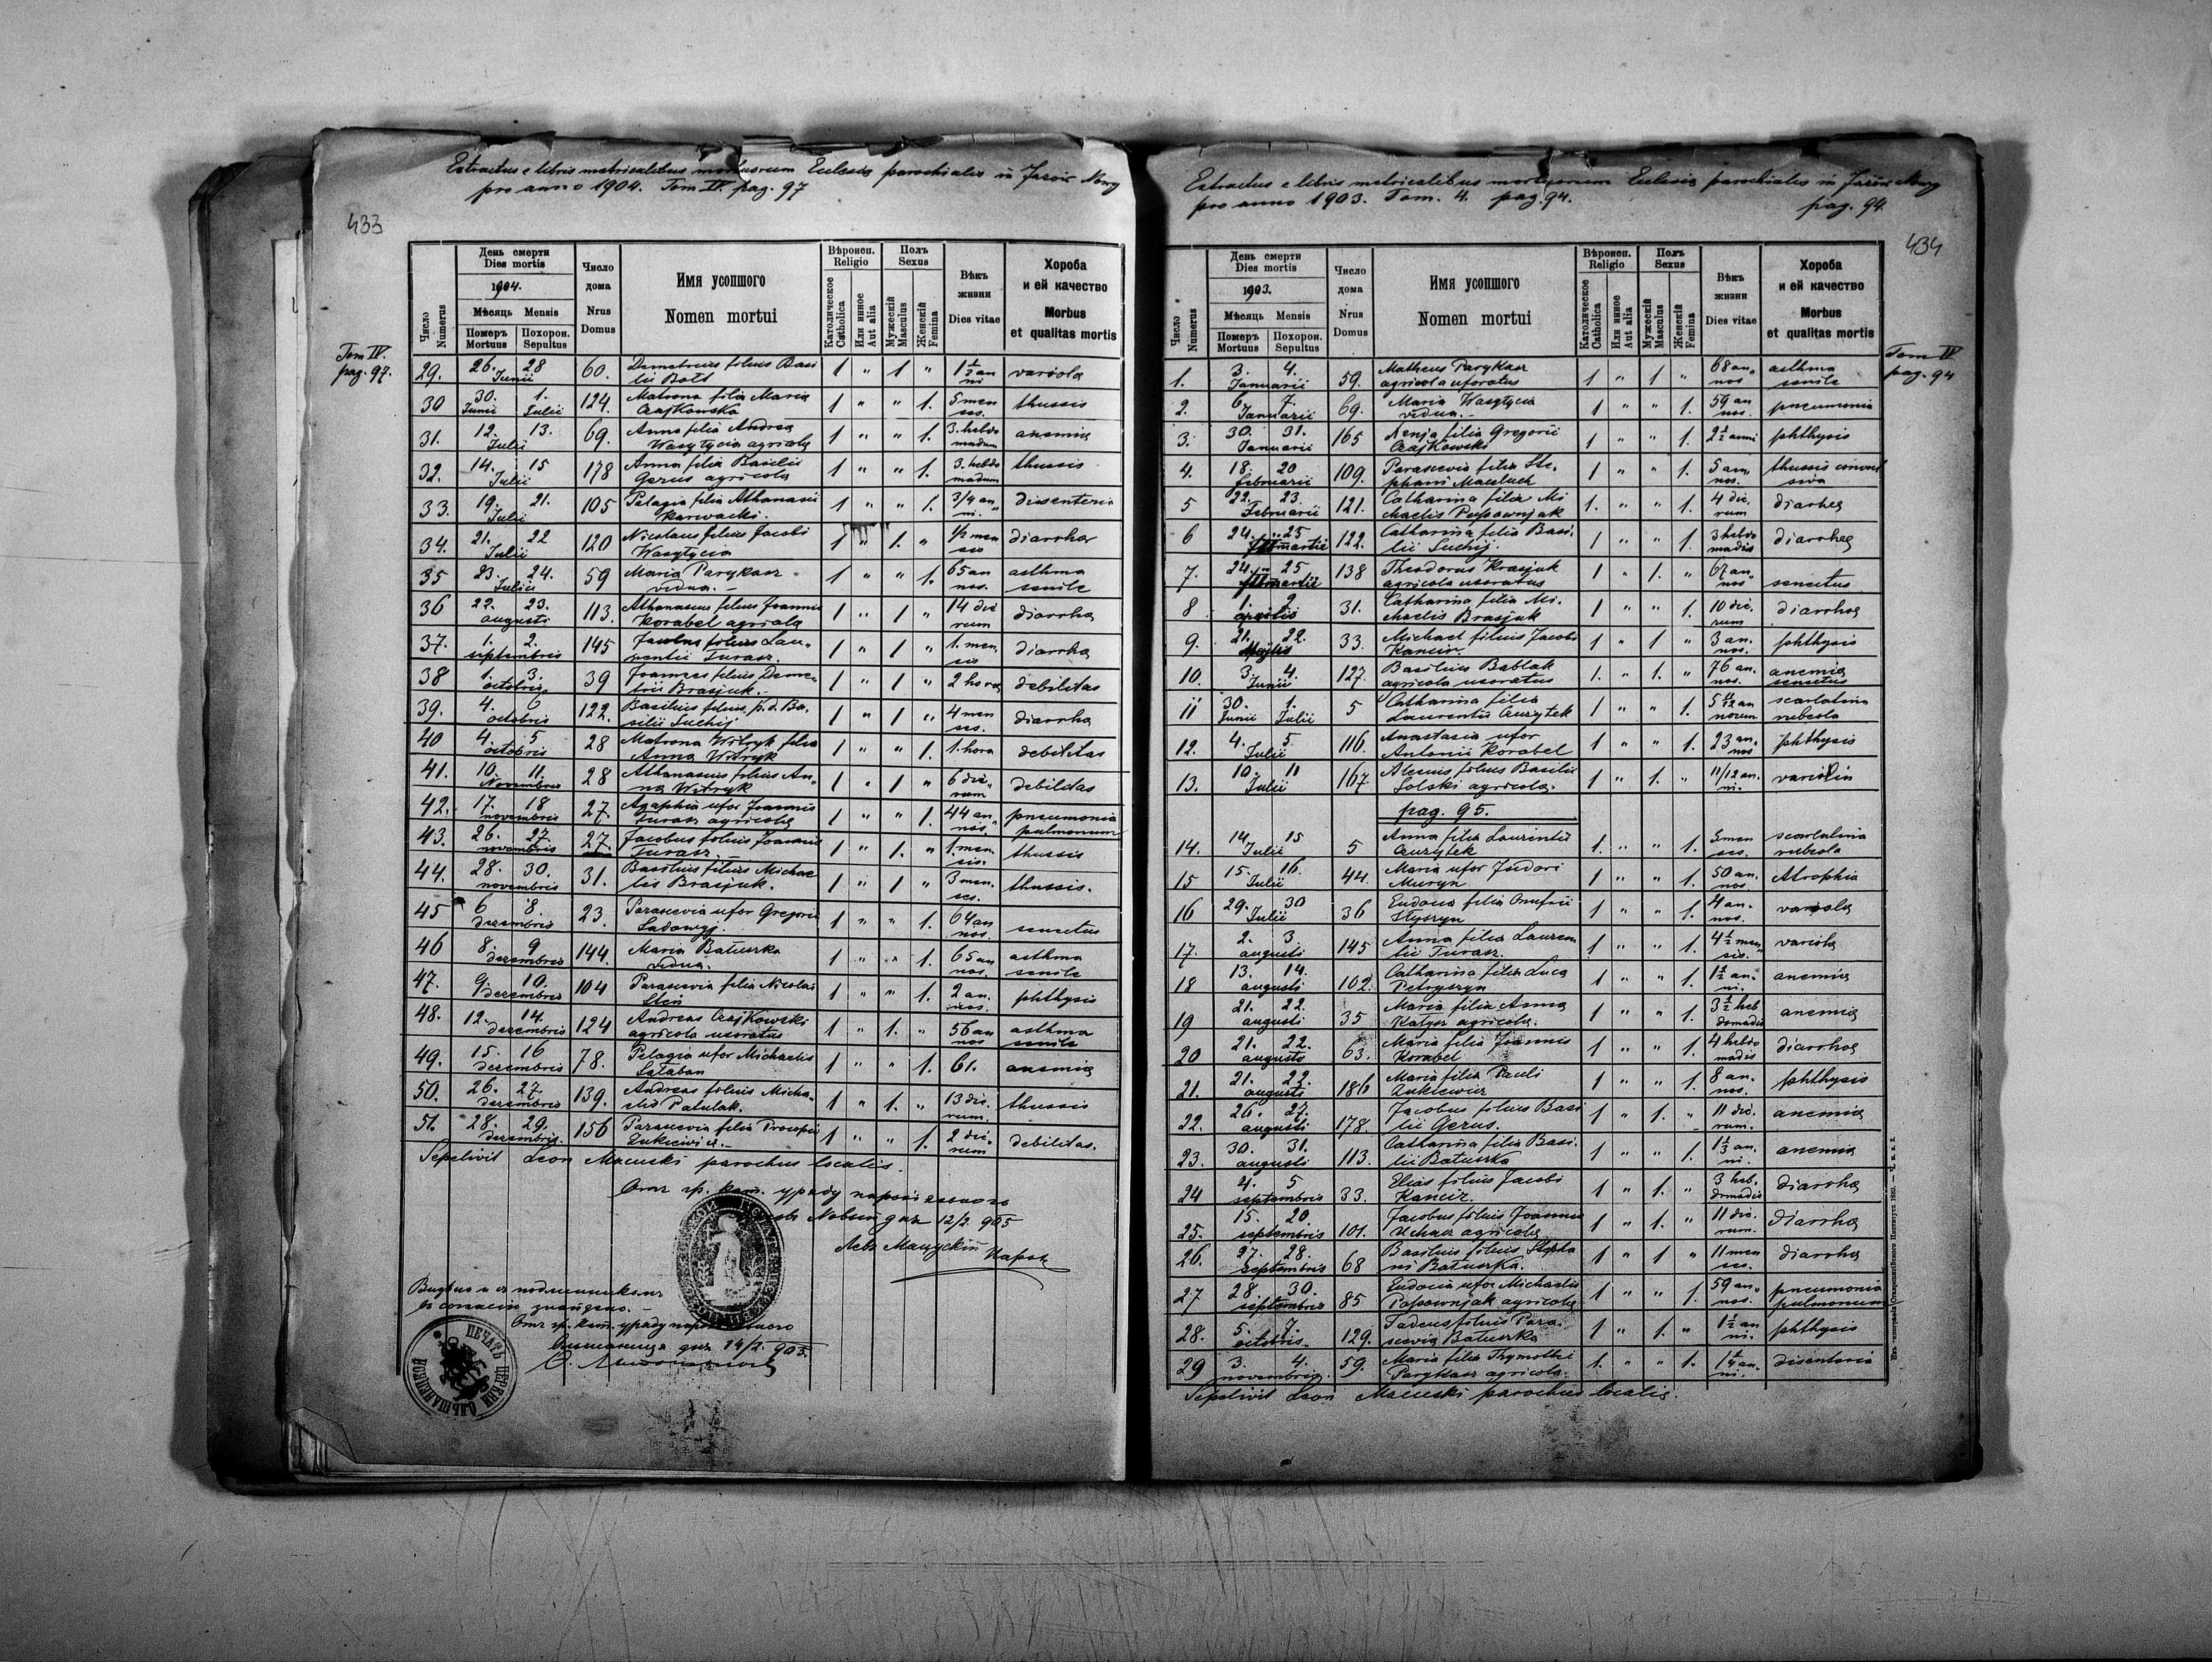 Extractus e libris metricalibus mortuorum Eclesia parochialis in Jazów Nowy
pro anno 1904. Tom IV. pag. 97
433
Tom IV.
pag. 97.
Число Numerus
День смерти
Dies mortis
1904.
Мѣсяць Mensis
Померъ Mortuus
Похорон. Sepultus
Число дома
Nrus Domus
Имя усопшого
Nomen mortui
Вѣроисп.
Religio
Католическое Catholica
Или инное Aut alia
Полъ
Sexus
Мужескій Masculus
Женскій Femina
Вѣкъ жизни
Dies vitae
Хороба и ей качество
Morbus et qualitas mortis
29. 26. Junii 28 60. Demetrius filius Basilii Bott 1 " 1 " 1½ anni variola
30 30. Junii 1. Julii 124. Matrona filia Maria Czajkowska 1 " " 1. 5 menses. thussis
31. 12. Julii 13. 69. Anna filia Andrea Wasytycia agricola 1 " " 1. 3. hebdomadum anemia
32. 14. Julii 15 178 Anna filia Basilii Gerus agricola 1 " " 1. 3. hebdomadum thussis
33. 19. Julii 21. 105 Pelagia filia Athanasii Karwacki. 1 " " 1. 3/4 anni. dissenteria
34. 21. Julii 22 120 Nicolaus filius Jacobi Wasytycia 1 " 1. " 1/2 mensis diarrhea
35 23. Julii 24. 59 Maria Parykasz vidua. 1 " " 1. 65 annos. asthma senile
36 22. augusti 23. 113. Athanasius filius Joannis Korabel agricola 1 " 1 " 14 dierum diarrhea
37. 1. septembris 2. 145 Jacobus filius Laurentii Turasz. 1 " 1 " 1. mensis diarrhea
38 1. octobris 3. 39 Joannes filius Demetrii Brasjuk. 1 " 1 " 2 hora debilitas
39. 4. octobris 6 122. Basilius filius p.d. Basilii Suchij 1 " 1 " 4 menses. diarrhea
40 4. octobris 5 28 Matrona Witryk filia Anna Witryk 1 " " 1. 1. hora debilitas
41. 10. Novembris 11. 28 Athanasius filius Anna Witryk 1 " 1 " 6 dierum debilitas
42. 17. novembris 18 27. Agaphia uxor Joannis Turasz agricola 1 " " 1. 44 annos. pneumonia pulmonum
43. 26. novembris 27 27. Jacobus filius Joannis Turasz. 1 " 1. " 1. mensis. thussis
44. 28. novembris 30. 31. Basilius filius Michaelis Brasjuk. 1 " 1 " 3 menses. thussis.
45 6 dezembris 8 23. Parascevia uxor Gregorii Sadowyj. 1 " " 1. 64 annos. senectus
46 8. dezembris 9 144. Maria Batuszka vidua. 1 " " 1. 65 annos. asthma senile
47. 9. dezembris 10. 104 Parascevia filia Nicolai Steś 1 " " 1. 2 annos. phthysis
48. 12. dezembris 14. 124 Andreas Czajkowski agricola uxoratus 1 " 1. " 56 annos asthma senile
49. 15. dezembris 16 78. Pelagia uxor Michaelis Sataban 1 " " 1. 61. anemia
50. 26. dezembris 27. 139. Andreas filius Michaelis Patulak. 1 " 1. " 13 dierum. thussis
51. 28. dezembris. 29. 156 Parascevia filia Procopii Lukiewicz. 1 " " 1. 2 dierum debilitas.
Sepelivit Leon Macuski parochus localis.
Отъ гр. кат. уряду парохіяльного
Новый дня 12/2. 905
Левъ Мацускій парох
Видѣно и съ подлинникомъ
въ согласіи знайдено.
Отъ гр. кат. уряду парохіяльного
дня 14/2. 905.
ПЕЧАТЬ ЦЕРКВИ
Extractus e libris metricalibus mortuorum Eclesia parochialis in Jazów Nowy
pro anno 1903. Tom. 4. pag. 94.
pag. 94.
434
Tom IV
pag. 94
Число Numerus
День смерти
Dies mortis
1903.
Мѣсяць Mensis
Померъ Mortuus
Похорон. Sepultus
Число дома
Nrus Domus
Имя усопшого
Nomen mortui
Вѣроисп.
Religio
Католическое Catholica
Или инное Aut alia
Полъ
Sexus
Мужескій Masculus
Женскій Femina
Вѣкъ жизни
Dies vitae
Хороба и ей качество
Morbus et qualitas mortis
1. 3. Januarii 4. 59. Matheus Parykasz agricola uxoratus 1 " 1 " 68 annos asthma senile
2. 6 Januarii 7. 69. Maria Wasytycia vidua. 1 " " 1. 59 annos. pneumonia
3. 30. Januarii 31. 165 Xenja filia Gregorii Czajkowski 1 " " 1. 2½ anni phthysis
4. 18. februarii 20 109. Parascevia filia Stephani Maczuch 1 " " 1. 5 annos. thussis convulsiva
5 22. Februarii 23. 121. Catharina filia Michaelis Popownjak 1. " " 1. 4 dierum diarhea
6 24. martii 25 122. Catharina filia Basilii Suchij. 1 " " 1. 3 hebdomadis diarrhea
7. 24. martii 25 138 Theodorus Krasjuk agricola uxoratus 1 " 1. " 67 annos senectus
8 1. aprilis 2 31. Catharina filia Michaelis Brasjuk 1 " " 1. 10 dierum diarrhea
9. 21. Majus 22. 33. Michael filius Jacobi Kancir. 1 " 1 " 3 annos. phthysis
10. 3. Junii 4. 127. Basilius Bablak agricola uxoratus 1. " 1. " 76 annos. anemia senectus
11 30. Junii 1. Julii 5 Catharina filia Laurentii Czuzytek 1 " " 1. 5 11/12 annorum scarlatina rubeola
12. 4. Julii 5. 116. Anastasia uxor Antonii Korabel 1 " " 1. 23 annos phthysis
13. 10. Julii 11 167. Alexius filius Basilii Solski agricola. 1 " 1. " 11/12 anni.
pag. 95.
14. 14 Julii 15 5 Anna filia Laurentii Czuzytek 1. " " 1. 3 menses. scarlatina rubeola
15 15. Julii 16. 44. Maria uxor Fudori Muryn 1 " " 1. 50 annos. Atrophia
16 29. Julii 30 36 Eudocia filia Onufrii Styszyn 1 " " 1. 4 annos. variola
17. 2. augusti 3 145 Anna filia Laurentii Turasz. 1 " " 1. 4½ mensis. variola
18 13. augusti 14. 102. Catharina filia Luca Petryszyn 1 " " 1. 1½ anni. anemia
19 21. augusti 22. 35 Maria filia Anna Katysz agricola. 1 " " 1. 3½ hebdomadis anemia
20 21. augusti 22. 63. Maria filia Joannis Korabel 1 " " 1. 4 hebdomadis diarrhea
21. 21. augusti 22. 186 Maria filia Pauli Lukiewicz 1 " " 1. 8 annos. phthysis
22. 26. augusti 27. 178. Jacobus filius Basilii Gerus. 1 " 1. " 11 dierum. anemia
23. 30. augusti 31. 113. Catharina filia Basilii Batuszka 1 " " 1. 1⅓ anni. anemia
24 4. septembris 5 33. Elias filius Jacobi Kancir. 1 " 1. " 3 hebdomadis diarrhea
25. 15. septembris 20 101. Jacobus filius Joannis agricola 1 " 1. " 11 dierum. diarrhea
26. 27. septembris 28. 68 Basilius filius Stephani Batuszka. 1 " 1 " 11 menses. diarrhea
27. 28. septembris 30. 85 Eudocia uxor Michaelis Popownjak agricola 1 " " 1. 59 annos. pneumonia pulmonum
28. 5. octobris 7. 129. Tadeus filius Parascevia Batuszka 1 " 1. " 1½ anni. phthysis
29 3. novembris 4. 59. Maria filia Thymothei Parykasz agricola. 1. " " 1. 1¼ anni. disenteria
Sepelivit Leon Macuski parochus localis.
Изъ типографіи Ставропигійского Института 1882.